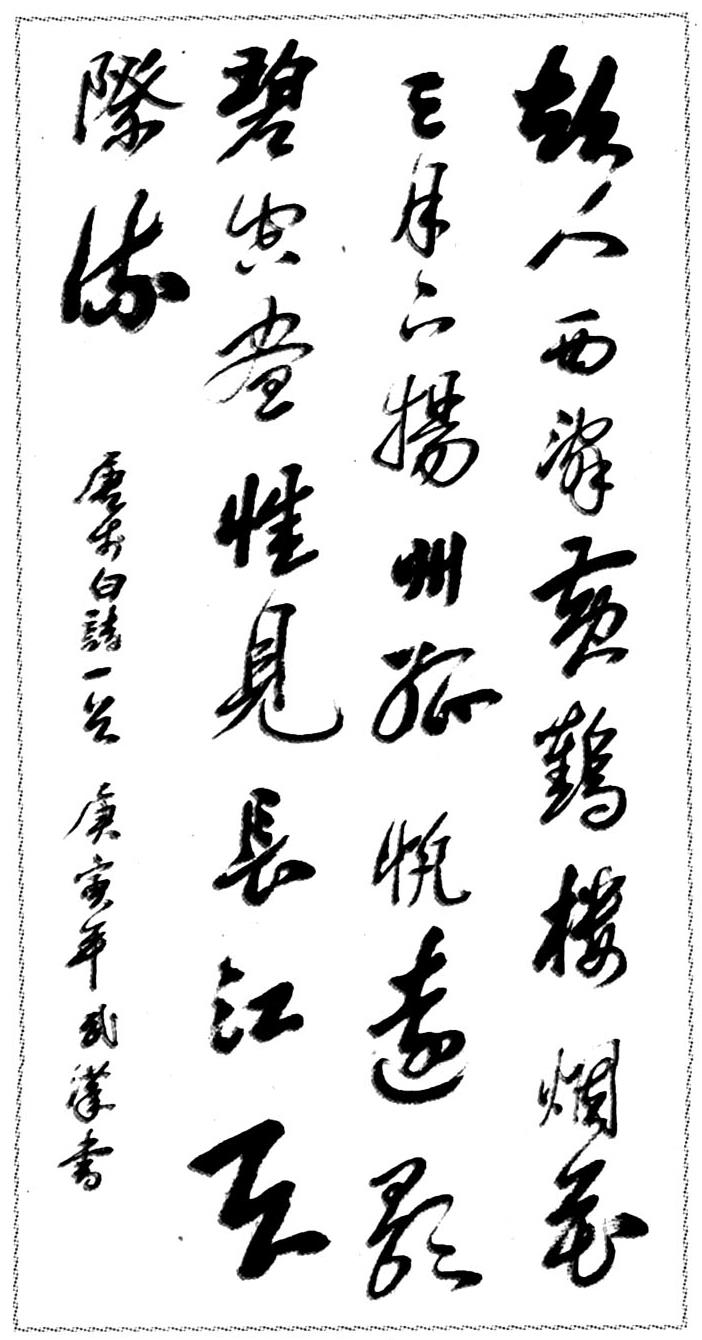 故人西辭黃鶴樓烟花
三月下揚州孤帆遠影
碧空盡惟見長江天
際流
唐李白詩一首 庚寅年武漢書